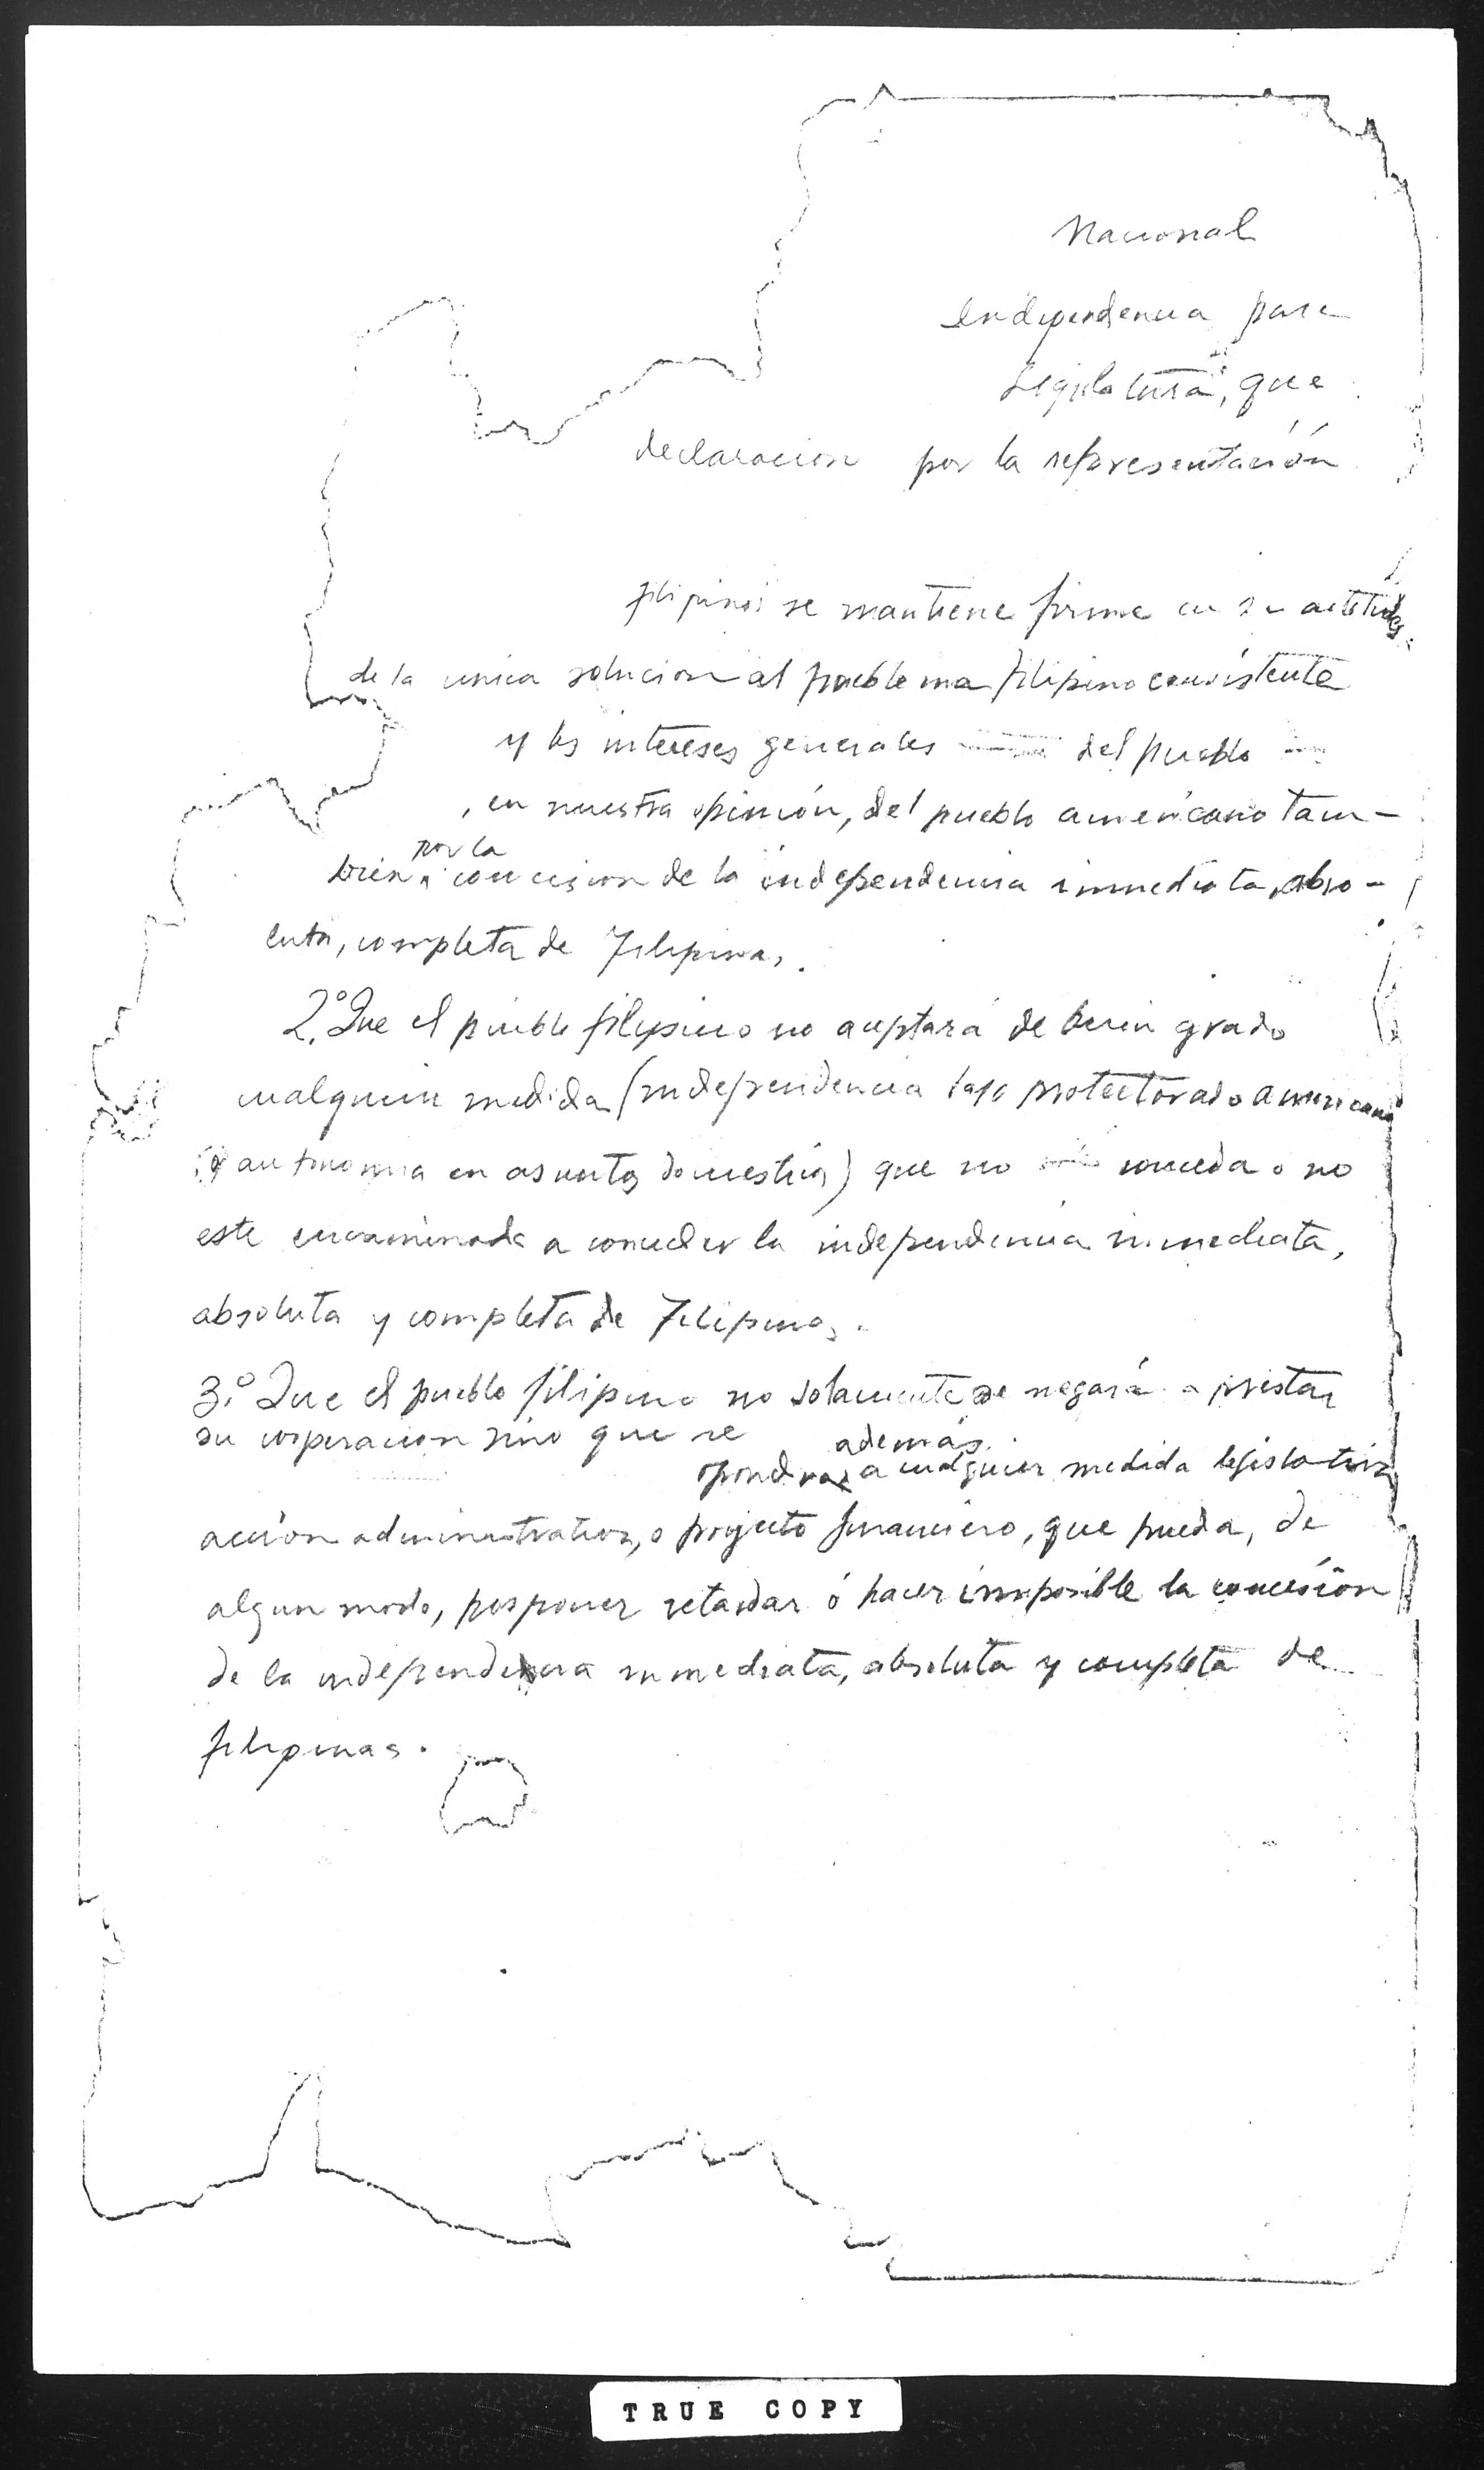 Nacional
Independencia para
Legislatura, que
declaracion por la representación
filipinos se mantiene firme en su actitud
de la unica solucion al problema filipino consistente
y los intereses generales del pueblo
, en nuestra opinión, del pueblo americano tam-
por la
bien concesion de la independencia inmediata, abso-
luta, completa de Filipinas.
2.º Que el pueblo filipino no aceptará de buen grado
cualquier medida (independencia bajo protectorado americano
o autonomia en asuntos domesticos) que no conceda o no
este encaminada a conceder la independencia inmediata,
absoluta y completa de Filipinas.
3.º Que el pueblo filipino no solamente se negará a prestar
su cooperacion sino que se
además
opondrá a cualquier medida legislativa
accion administrativa, o proyecto financiero, que pueda, de
algun modo, posponer retardar ó hacer imposible la concesión
de la independencia inmediata, absoluta y completa de
filipinas.
TRUE COPY